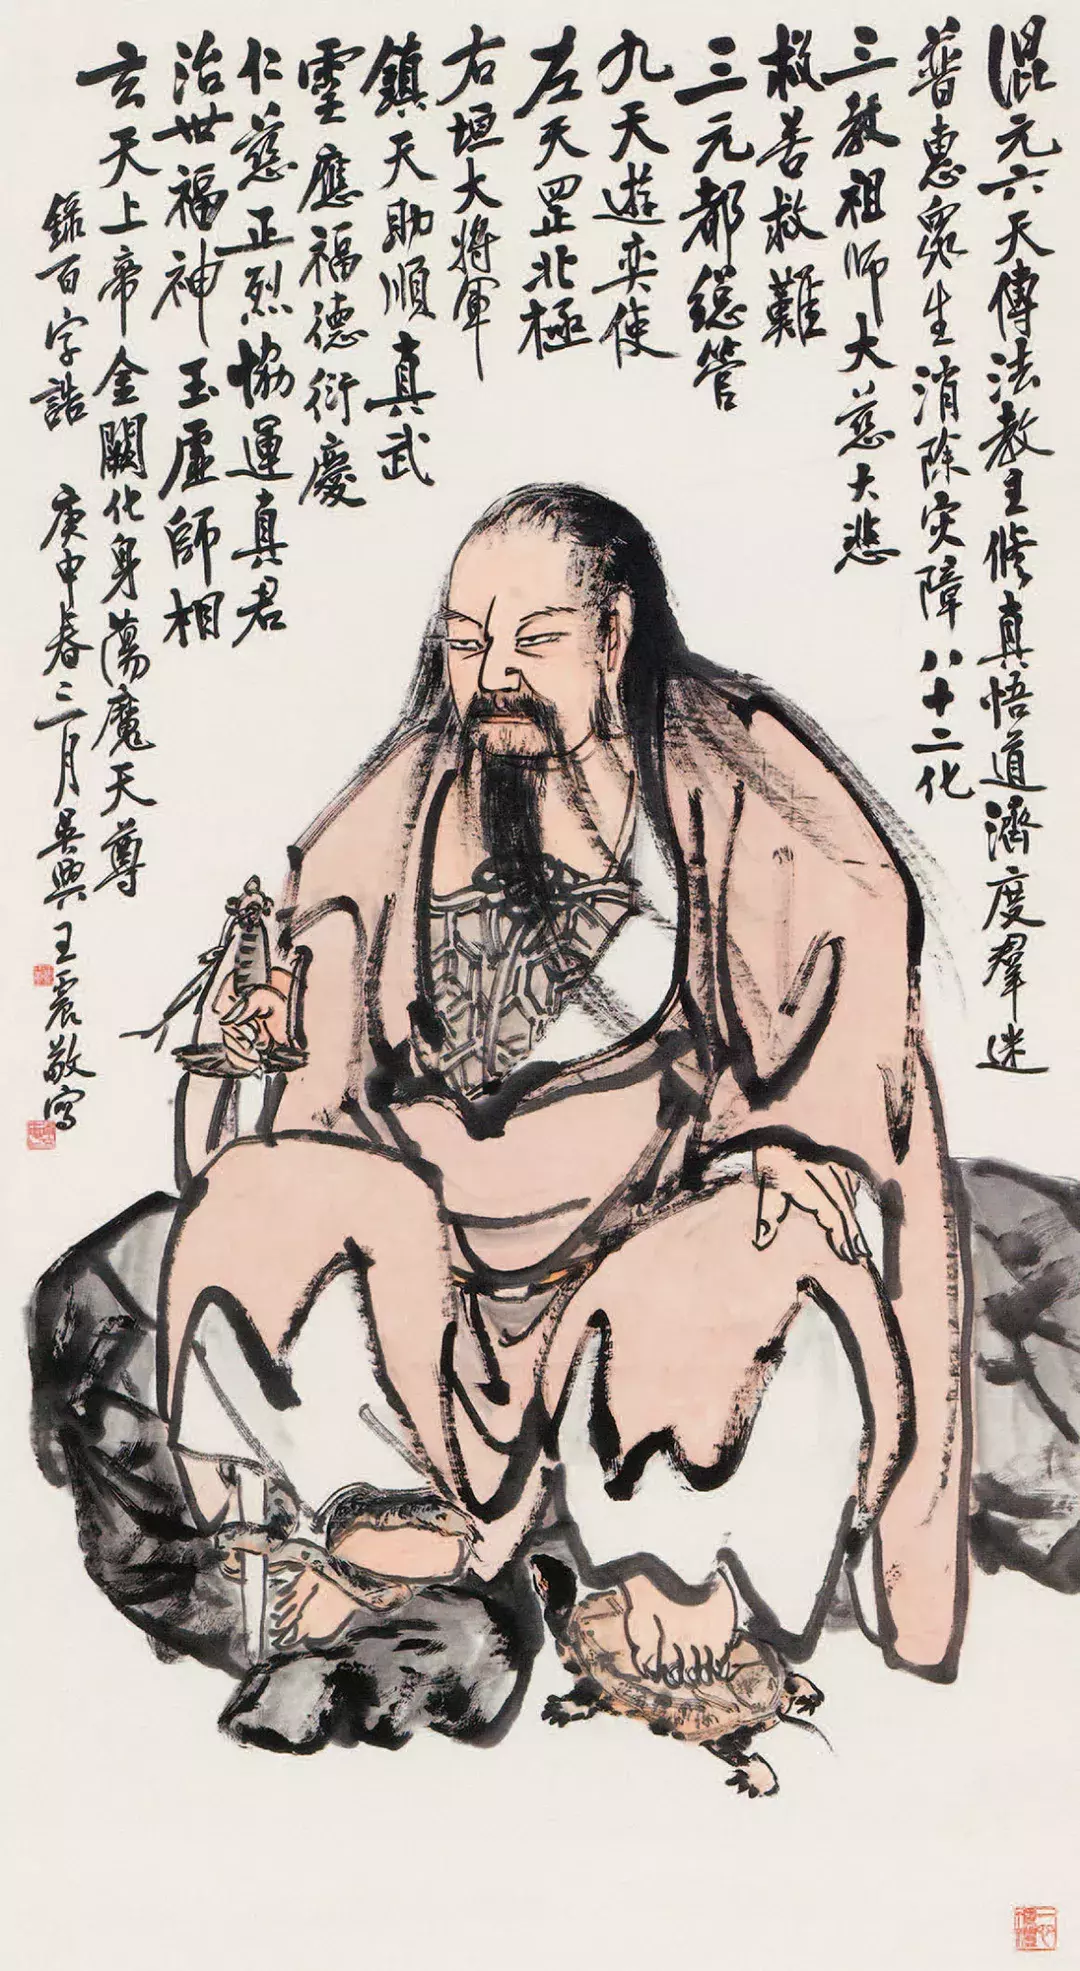 混元六天傳法教主修真悟道濟度羣迷
普惠眾生消除災障八十二化
三教祖師大慈大悲
救苦救難
三元都總管
九天遊奕使
左天罡北極
右垣大將軍
鎮天助順真武
靈應福德衍慶
仁慈正烈協運真君
治世福神玉虛師相
玄天上帝金闕化身蕩魔天尊
錄百字誥 庚申春三月吳興王震敬寫